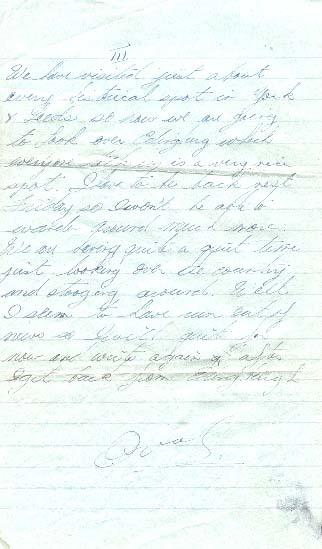 III
We have visited just about
every historical spot in York
& Leeds so now we are going
to look over Edinburg which
everyone says is a very nice
spot. I have to be back next
Friday so I wont be able to
around much more.
We are having quite a quiet time
just looking over the country
and stooging around. Well
I seem to have run out of
news so I will quit for
now and write again after
I get back from